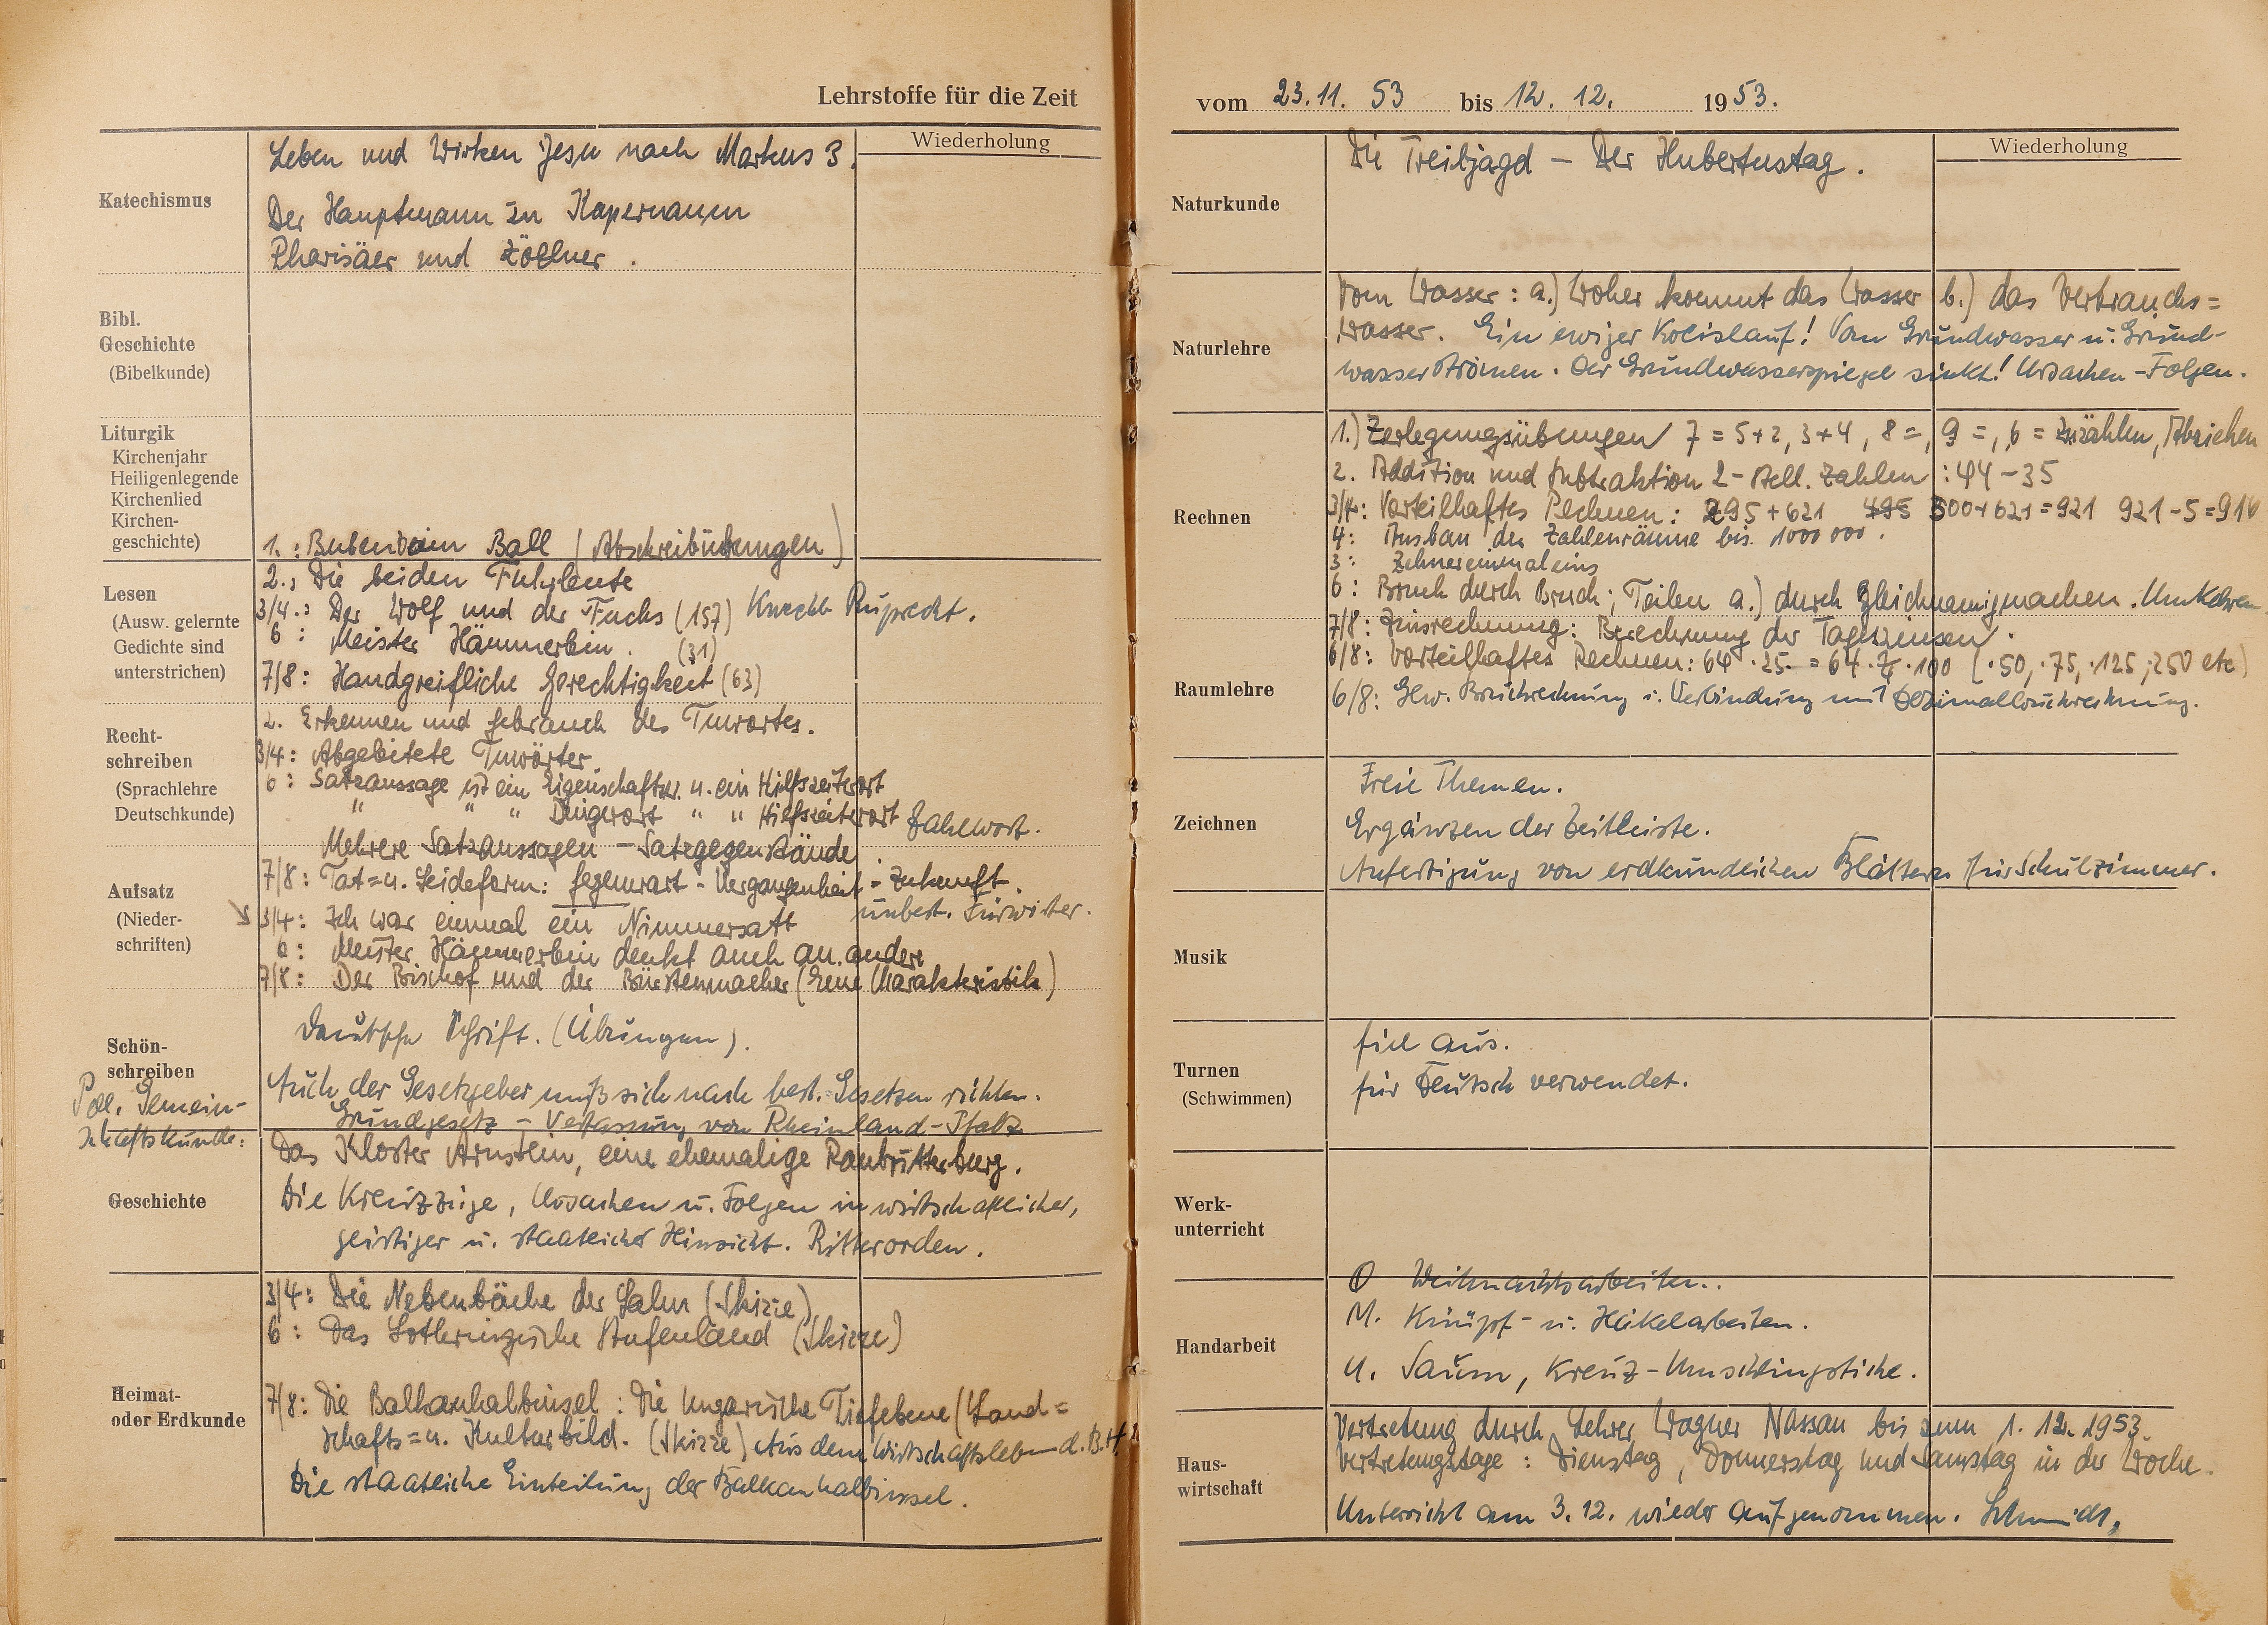 Lehrstoffe für die Zeit
Wiederholung
Katechismus
Leben und Wirken Jesu nach Markus 3.
Der Hauptmann zu Kapernaum
Pharisäer und Zöllner.
Bibl.
Geschichte
(Bibelkunde)
Liturgik
Kirchenjahr
Heiligenlegende
Kirchenlied
Kirchen-
geschichte)
1.: Ball (Abschreibübungen)
Lesen
(Ausw. gelernte
Gedichte sind
unterstrichen)
2.: Die beiden Fuhrleute
3/4.: Der Wolf und der Fuchs (157) Knecht Ruprecht.
6: Meister Hämmerlein. (31)
7/8: Handgreifliche Gerechtigkeit (63)
Recht-
schreiben
(Sprachlehre
Deutschkunde)
2. Erkennen und Gebrauch des Tuwortes.
3/4: Abgeleitete Tuwörter
6: Satzaussage ist ein Eigenschaftsw. u. ein Hilfszeitwort
" " " Dingwort " " Hilfszeitwort Zahlwort.
Mehrere Satzaussagen - Satzgegenstände.
Aufsatz
(Nieder-
schriften)
7/8: Tat= u. Leideform: Gegenwart - Vergangenheit - Zukunft.
unbest. Fürwörter.
3/4: Ich war einmal ein Nimmersatt
6: Meister Hämmerlein denkt auch an andere
7/8: Der Bischof und der Bürstenmacher (Eine Charakteristik)
Schön-
schreiben
Deutsche Schrift. (Übungen).
Pol. Gemein-
schaftskunde:
Auch der Gesetzgeber muß sich nach best. Gesetzen richten.
Grundgesetz - Verfassung von Rheinland-Pfalz
Geschichte
Das Kloster Arnstein, eine ehemalige Raubritterburg.
Die Kreuzzüge, Ursachen u. Folgen in wirtschaftlicher,
geistiger u. staatlicher Hinsicht. Ritterorden.
Heimat-
oder Erdkunde
3/4: Die Nebenbäche der Lahn (Skizze)
6: Das Lothringische Stufenland (Skizze)
7/8: Die Balkanhalbinsel: Die Ungarische Tiefebene (Land=
schafts= u. Kulturbild. (Skizze) Aus dem Wirtschaftsleben d. B.H.
Die staatliche Einteilung der Balkanhalbinsel.
vom 23.11. 53 bis 12. 12. 1953.
Wiederholung
Naturkunde
Die Treibjagd - Der Hubertustag.
Naturlehre
Vom Wasser: a.) Woher kommt das Wasser b.) das Verbrauchs=
wasser. Ein ewiger Kreislauf! Vom Grundwasser u. Grund-
wasserströmen. Der Grundwasserspiegel sinkt! Ursachen - Folgen.
Rechnen
1.) Zerlegungsübungen 7 = 5+2, 3+4, 8 =, 9 =, 6 = Zuzählen, Abziehen
2. Addition und Subtraktion 2-stell. Zahlen: 44 - 35
3/4: Vorteilhaftes Rechnen: 295 + 621 495 300+621=921 921-5=916
4: Ausbau der Zahlenräume bis 1000 000.
3: Zehnereinmaleins
6: Bruch durch Bruch; Teilen a.) durch Gleichnamigmachen. Umkehren
7/8: Zinsrechnung: Berechnung der Tageszinsen.
Raumlehre
6/8: Vorteilhaftes Rechnen: 64 · 25 = 64 · ¼ · 100 (·50, ·75, ·125, ·250 etc)
6/8: Gew. Bruchrechnung i. Verbindung mit Dezimalbruchrechnung.
Zeichnen
Freie Themen.
Ergänzen der Zeitleiste.
Anfertigung von erdkundlichen Blättern für Schulzimmer.
Musik
Turnen
(Schwimmen)
fiel aus.
für Deutsch verwendet.
Werk-
unterricht
Handarbeit
O Weihnachtsarbeiten.
M. Knüpf- u. Häkelarbeiten.
U. Saum, Kreuz-Umschlingstiche.
Haus-
wirtschaft
Vertretung durch Lehrer Wagner Nassau bis zum 1. 12. 1953.
Vertretungstage: Dienstag, Donnerstag und Samstag in der Woche.
Unterricht am 3. 12. wieder aufgenommen. Schmidt,